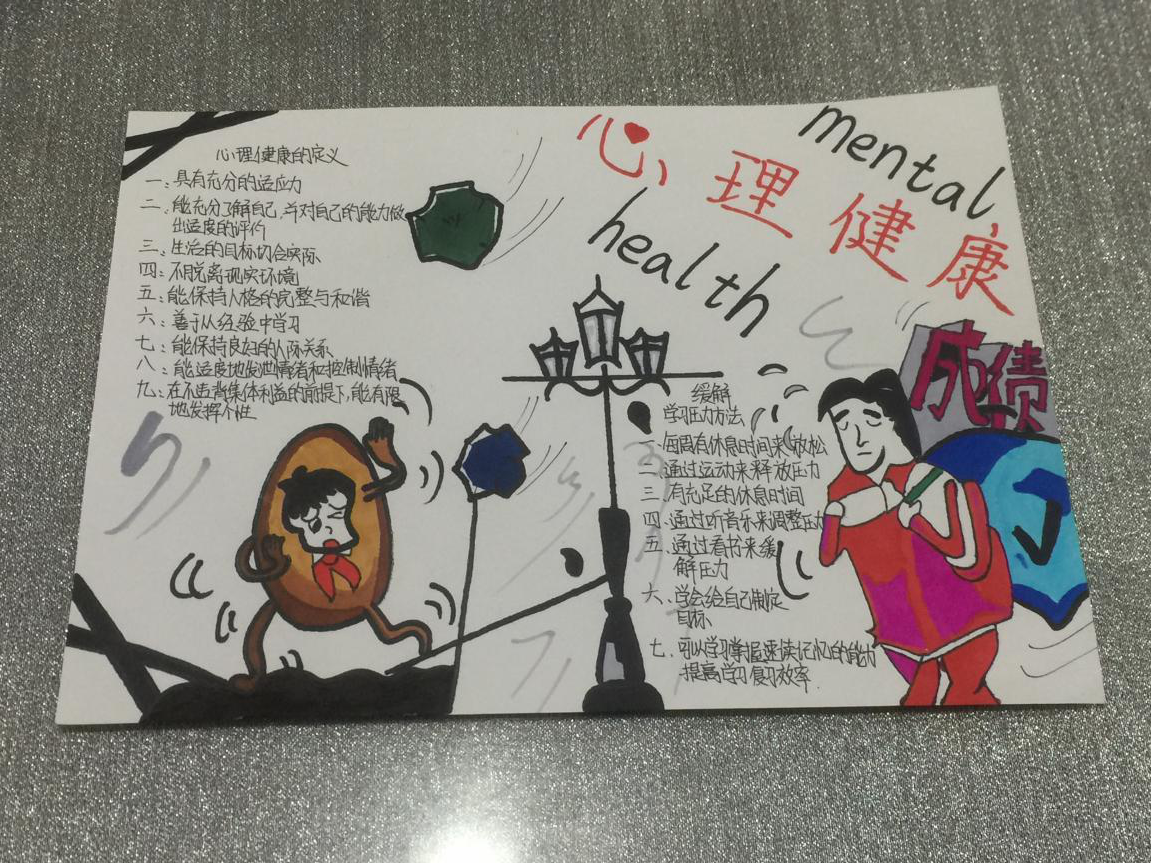 mental
心理健康
health
心理健康的定义
一：具有充分的适应力
二：能充分了解自己，并对自己的能力做
出适度的评价
三：生活的目标切合实际
四：不脱离现实环境
五：能保持人格的完整与和谐
六：善于从经验中学习
七：能保持良好的人际关系
八：能适度地发泄情绪和控制情绪
九：在不违背集体利益的前提下，能有限
地发挥个性
成绩
缓解
学习压力方法
一、每周有休息时间来放松
二、通过运动来释放压力
三、有充足的休息时间
四、通过听音乐来调整压力
五、通过看书来缓
解压力
六、学会给自己制定
目标
七、可以学习掌握速读记忆的能力
提高学习复习效率.